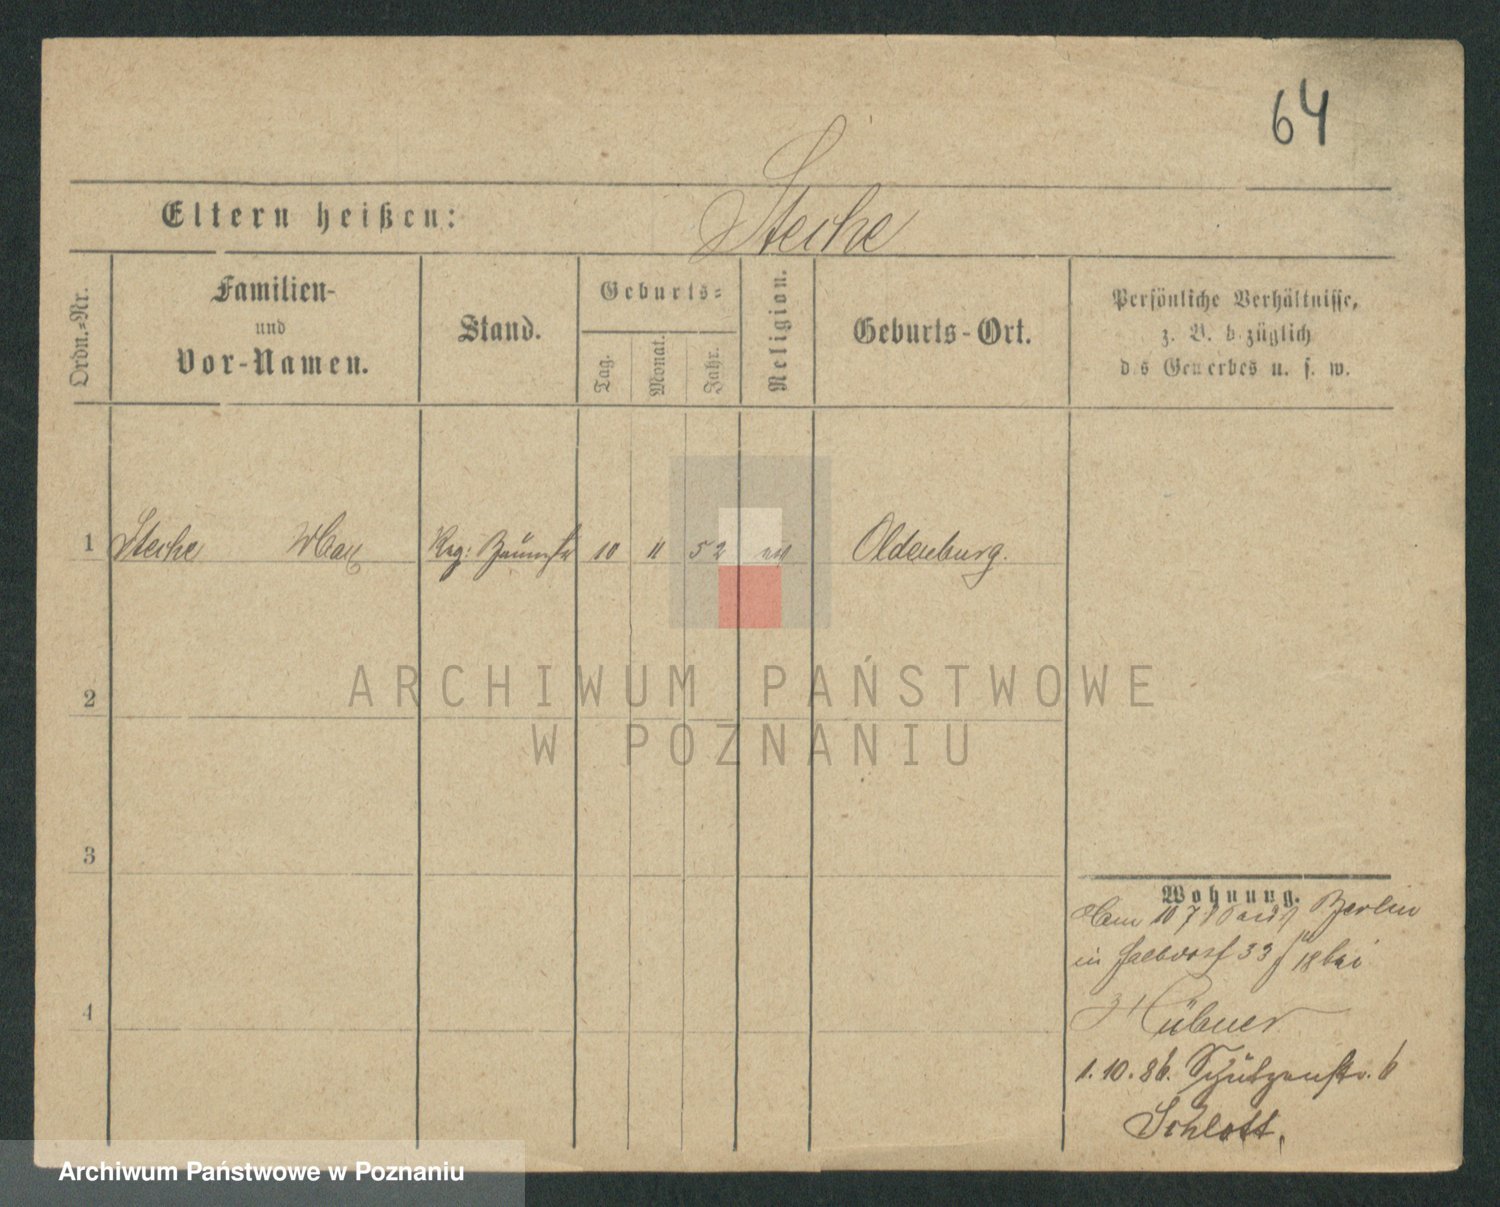 64
Eltern heißen:
Steche
Ordn.=Nr.
Familien-
und
Vor-Namen.
Stand.
Geburts=
Tag.
Monat.
Jahr.
Religion.
Geburts-Ort.
Persönliche Verhältnisse,
z. B. bezüglich
des Gewerbes u. s. w.
1 Steche Max Reg: Baumstr 10 11 52 ev Oldenburg.
2
3
4
ARCHIWUM PAŃSTWOWE
W POZNANIU
Wohnung.
Berlin
in 33 18 bei
Hübner
1. 10. 86. Schützenstr. 6
Schlott.
Archiwum Państwowe w Poznaniu